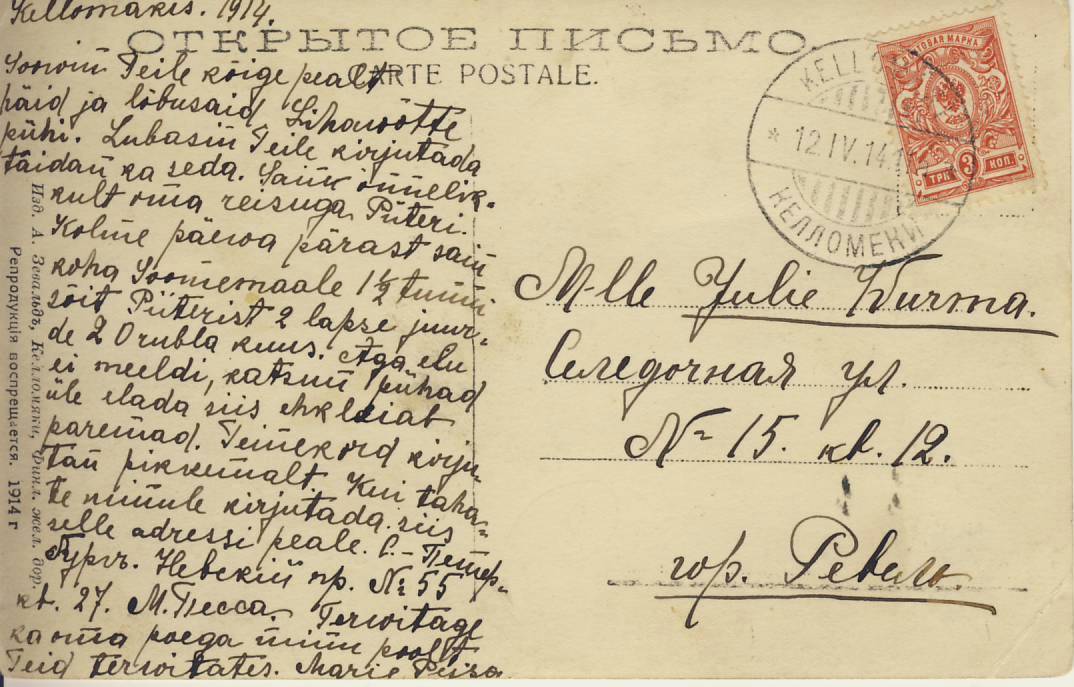 Kellomäkis. 1914.
ОТКРЫТОЕ ПИСЬМО.
CARTE POSTALE.
Soowin Teile kõige pealt
häid ja lõbusaid Lihawõtte
pühi. Lubasin Teile kirjutada
täidan ka seda. Sain õnnelik-
kult oma reisuga Piiteri.
Kolme päewa pärast sain
koha Soomemaale 1½ tunni
sõit Piiterist 2 lapse juur-
de 20 rubla kuus. Aga elu
ei meeldi, katsun pühad
üle elada siis ehk leiab
paremad. Teinekord kirju-
tan pikkemalt. Kui taha-
te minule kirjutada siis
selle adressi peale. С.-Петер-
бургъ. Невскій пр. № 55
кв. 27. М. Песса. Terwitage
ka oma poega minu poolt
Teid terwitates. Marie
Изд. А. Зевальдъ, Келломяки, Финл. жел. дор.
Репродукція воспрещается. 1914 г
KELLO
* 12.IV.14
КЕЛЛОМЕКИ
ПОЧТОВАЯ МАРКА
ТРИ 3 КОП.
M-lle Julie Wurma.
Селедочная ул.
№ 15. кв. 12.
гор. Ревель